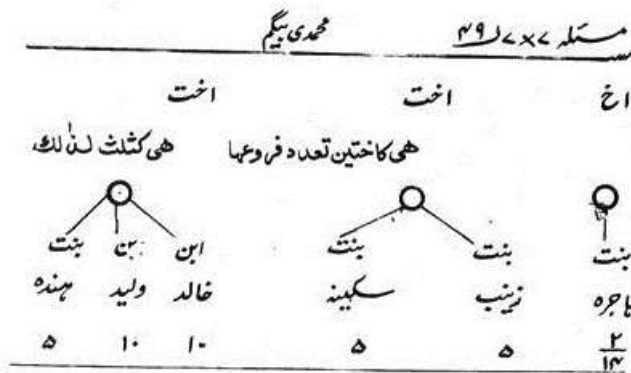 مسئلہ ۷×۷ ۴۹ محمدی بیگم
اخ اخت اخت
ھی کاختین تعدد فروعھا ھی کثلث لذٰلک
بنت بنت بنت ابن ابن بنت
ہاجرہ زینب سکینہ خالد ولید ہندہ
۲ ۵ ۵ ۱۰ ۱۰ ۵
۱۴